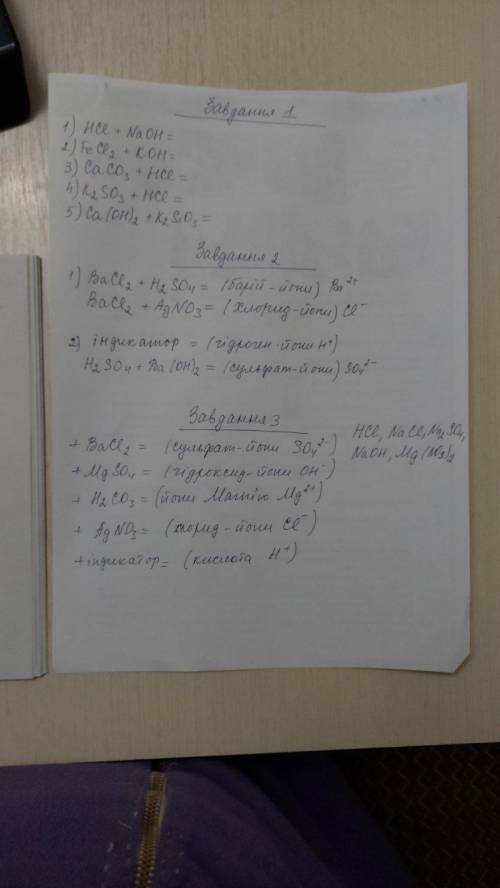 Завдання 1
1) HCl + NaOH =
2) FeCl₂ + KOH =
3) CaCO₃ + HCl =
4) K₂SO₃ + HCl =
5) Ca(OH)₂ + K₂SiO₃ =
Завдання 2
1) BaCl₂ + H₂SO₄ = (барій-йони) Ba²⁺
BaCl₂ + AgNO₃ = (хлорид-йони) Cl⁻
2) індикатор = (гідроген-йони H⁺)
H₂SO₄ + Ba(OH)₂ = (сульфат-йони) SO₄²⁻
Завдання 3
HCl, NaCl, Na₂SO₄,
NaOH, Mg(NO₃)₂
+ BaCl₂ = (сульфат-йони SO₄²⁻)
+ MgSO₄ = (гідроксид-йони OH⁻)
+ H₂CO₃ = (йони Магнію Mg²⁺)
+ AgNO₃ = (хлорид-йони Cl⁻)
+ індикатор = (кислота H⁺)